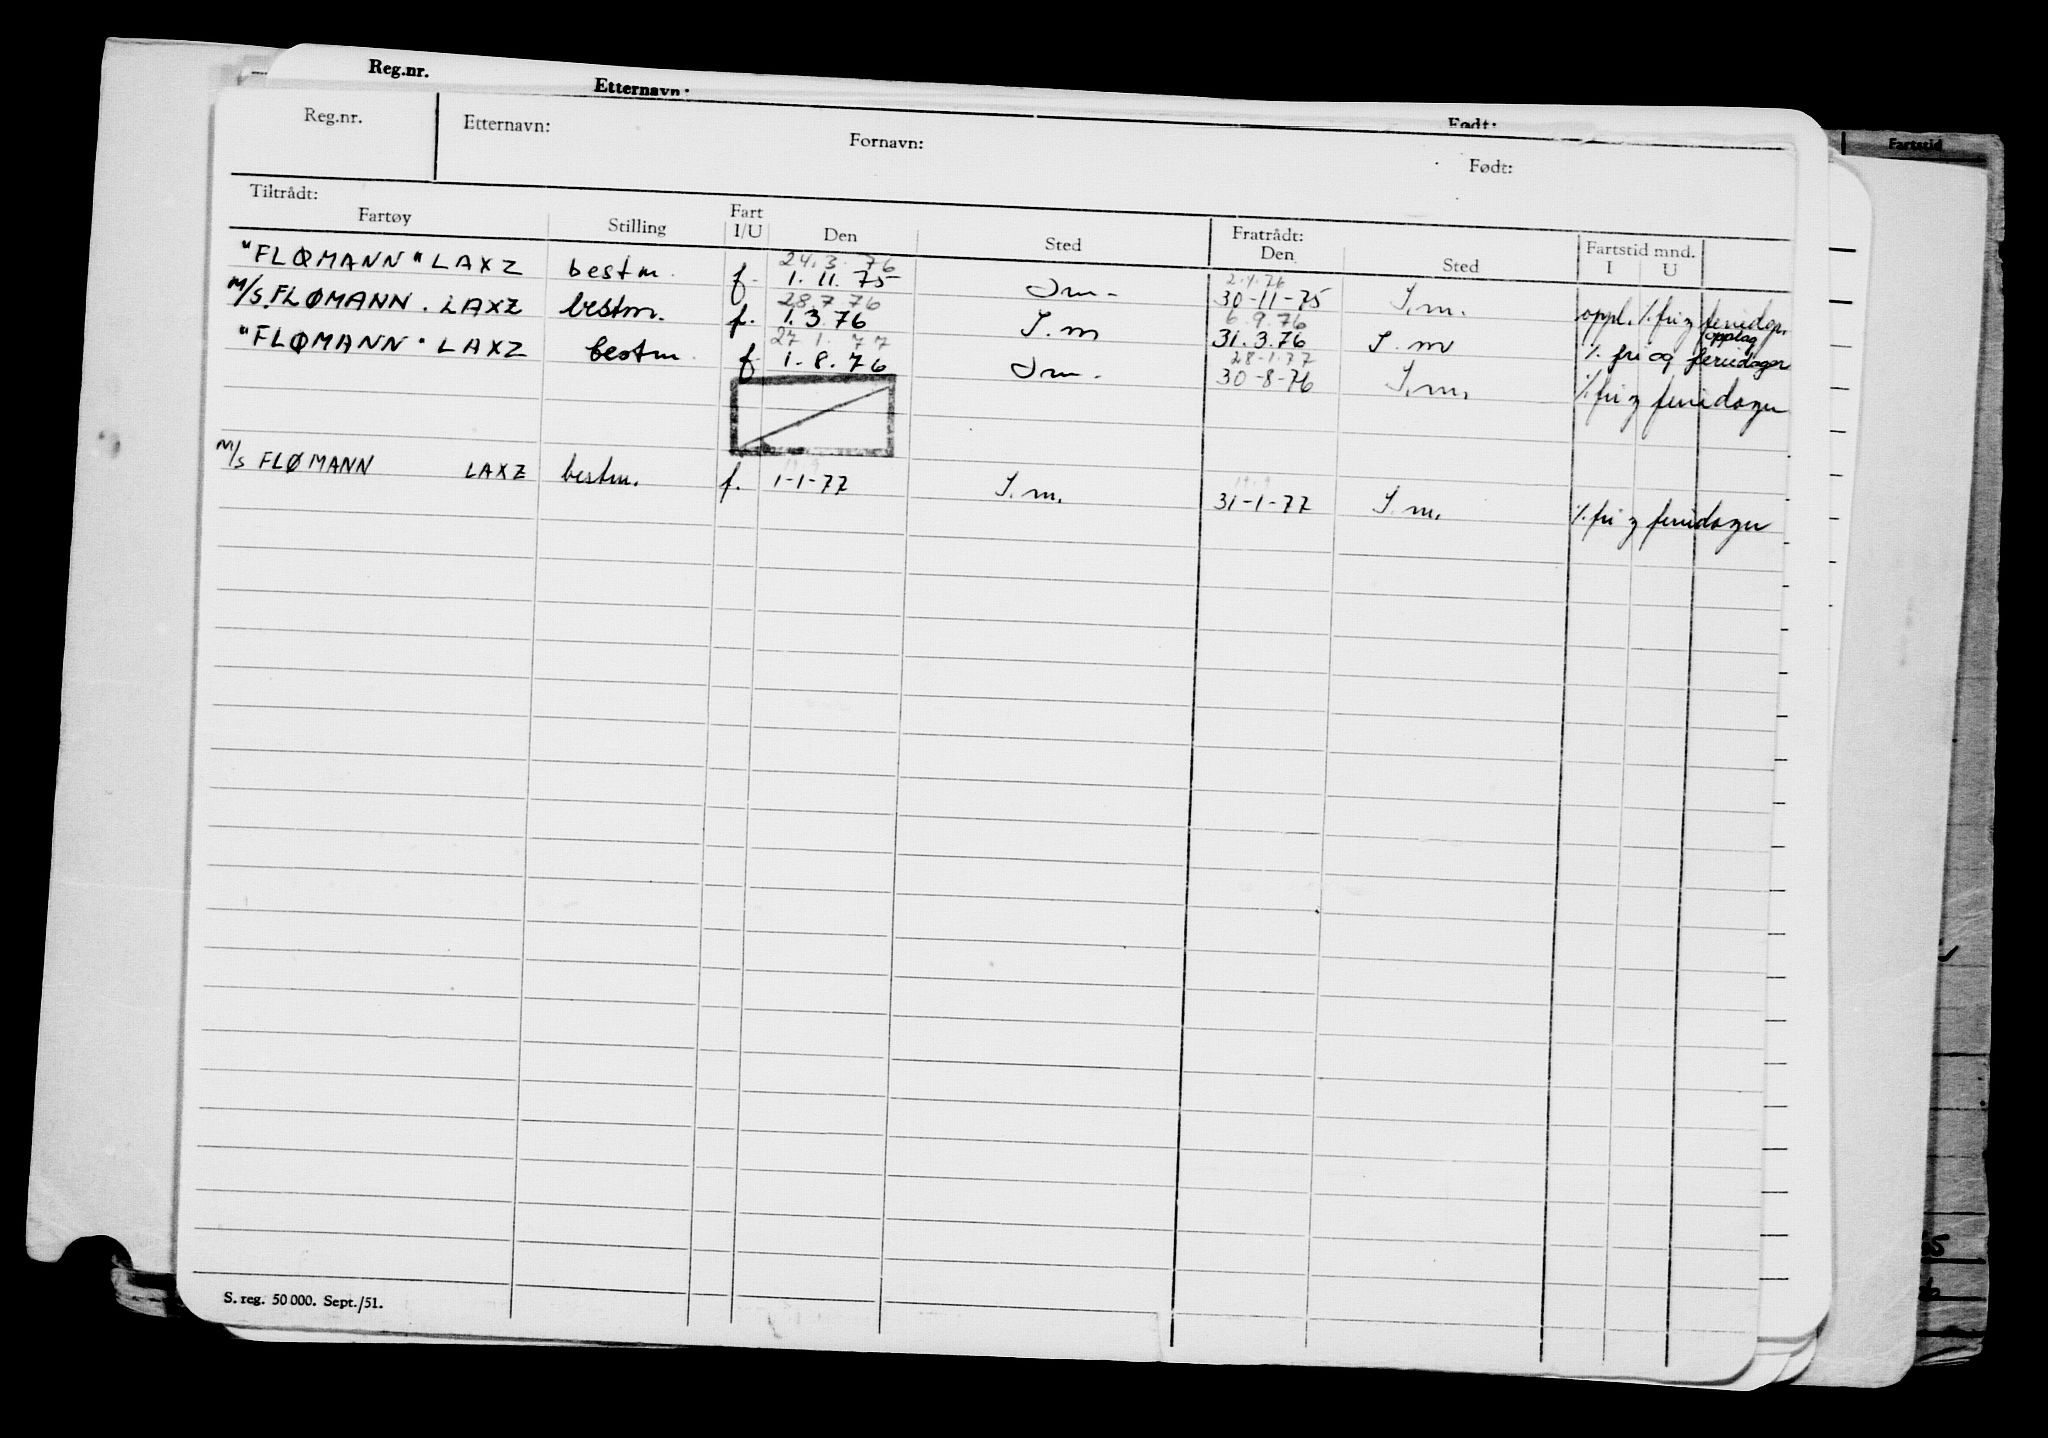 Reg.nr. Etternavn: Født: Fartstid
Reg.nr. Etternavn: Fornavn: Født:
Tiltrådt: Fratrådt:
Fartøy Stilling Fart I/U Den Sted Den Sted Fartstid mnd. I U
24.3.76 2.4.76
"FLØMANN" LAXZ bestm. f. 1.11.75 Im. 30-11-75 I.m. oppl. %. fri og feriedgr.
28.7.76 6.9.76 opplag
M/S. FLØMANN. LAXZ bestm. f. 1.3.76 I.m 31.3.76 I.m %. fri og feriedager
27.1.77 28-1-77
"FLØMANN" LAXZ bestm. f 1.8.76 Im. 30-8-76 I.m. %. fri og feriedager
19.9 19.9
M/S FLØMANN LAXZ bestm. f. 1-1-77 I.m. 31-1-77 I.m. %. fri og feriedager
S. reg. 50 000. Sept./51.